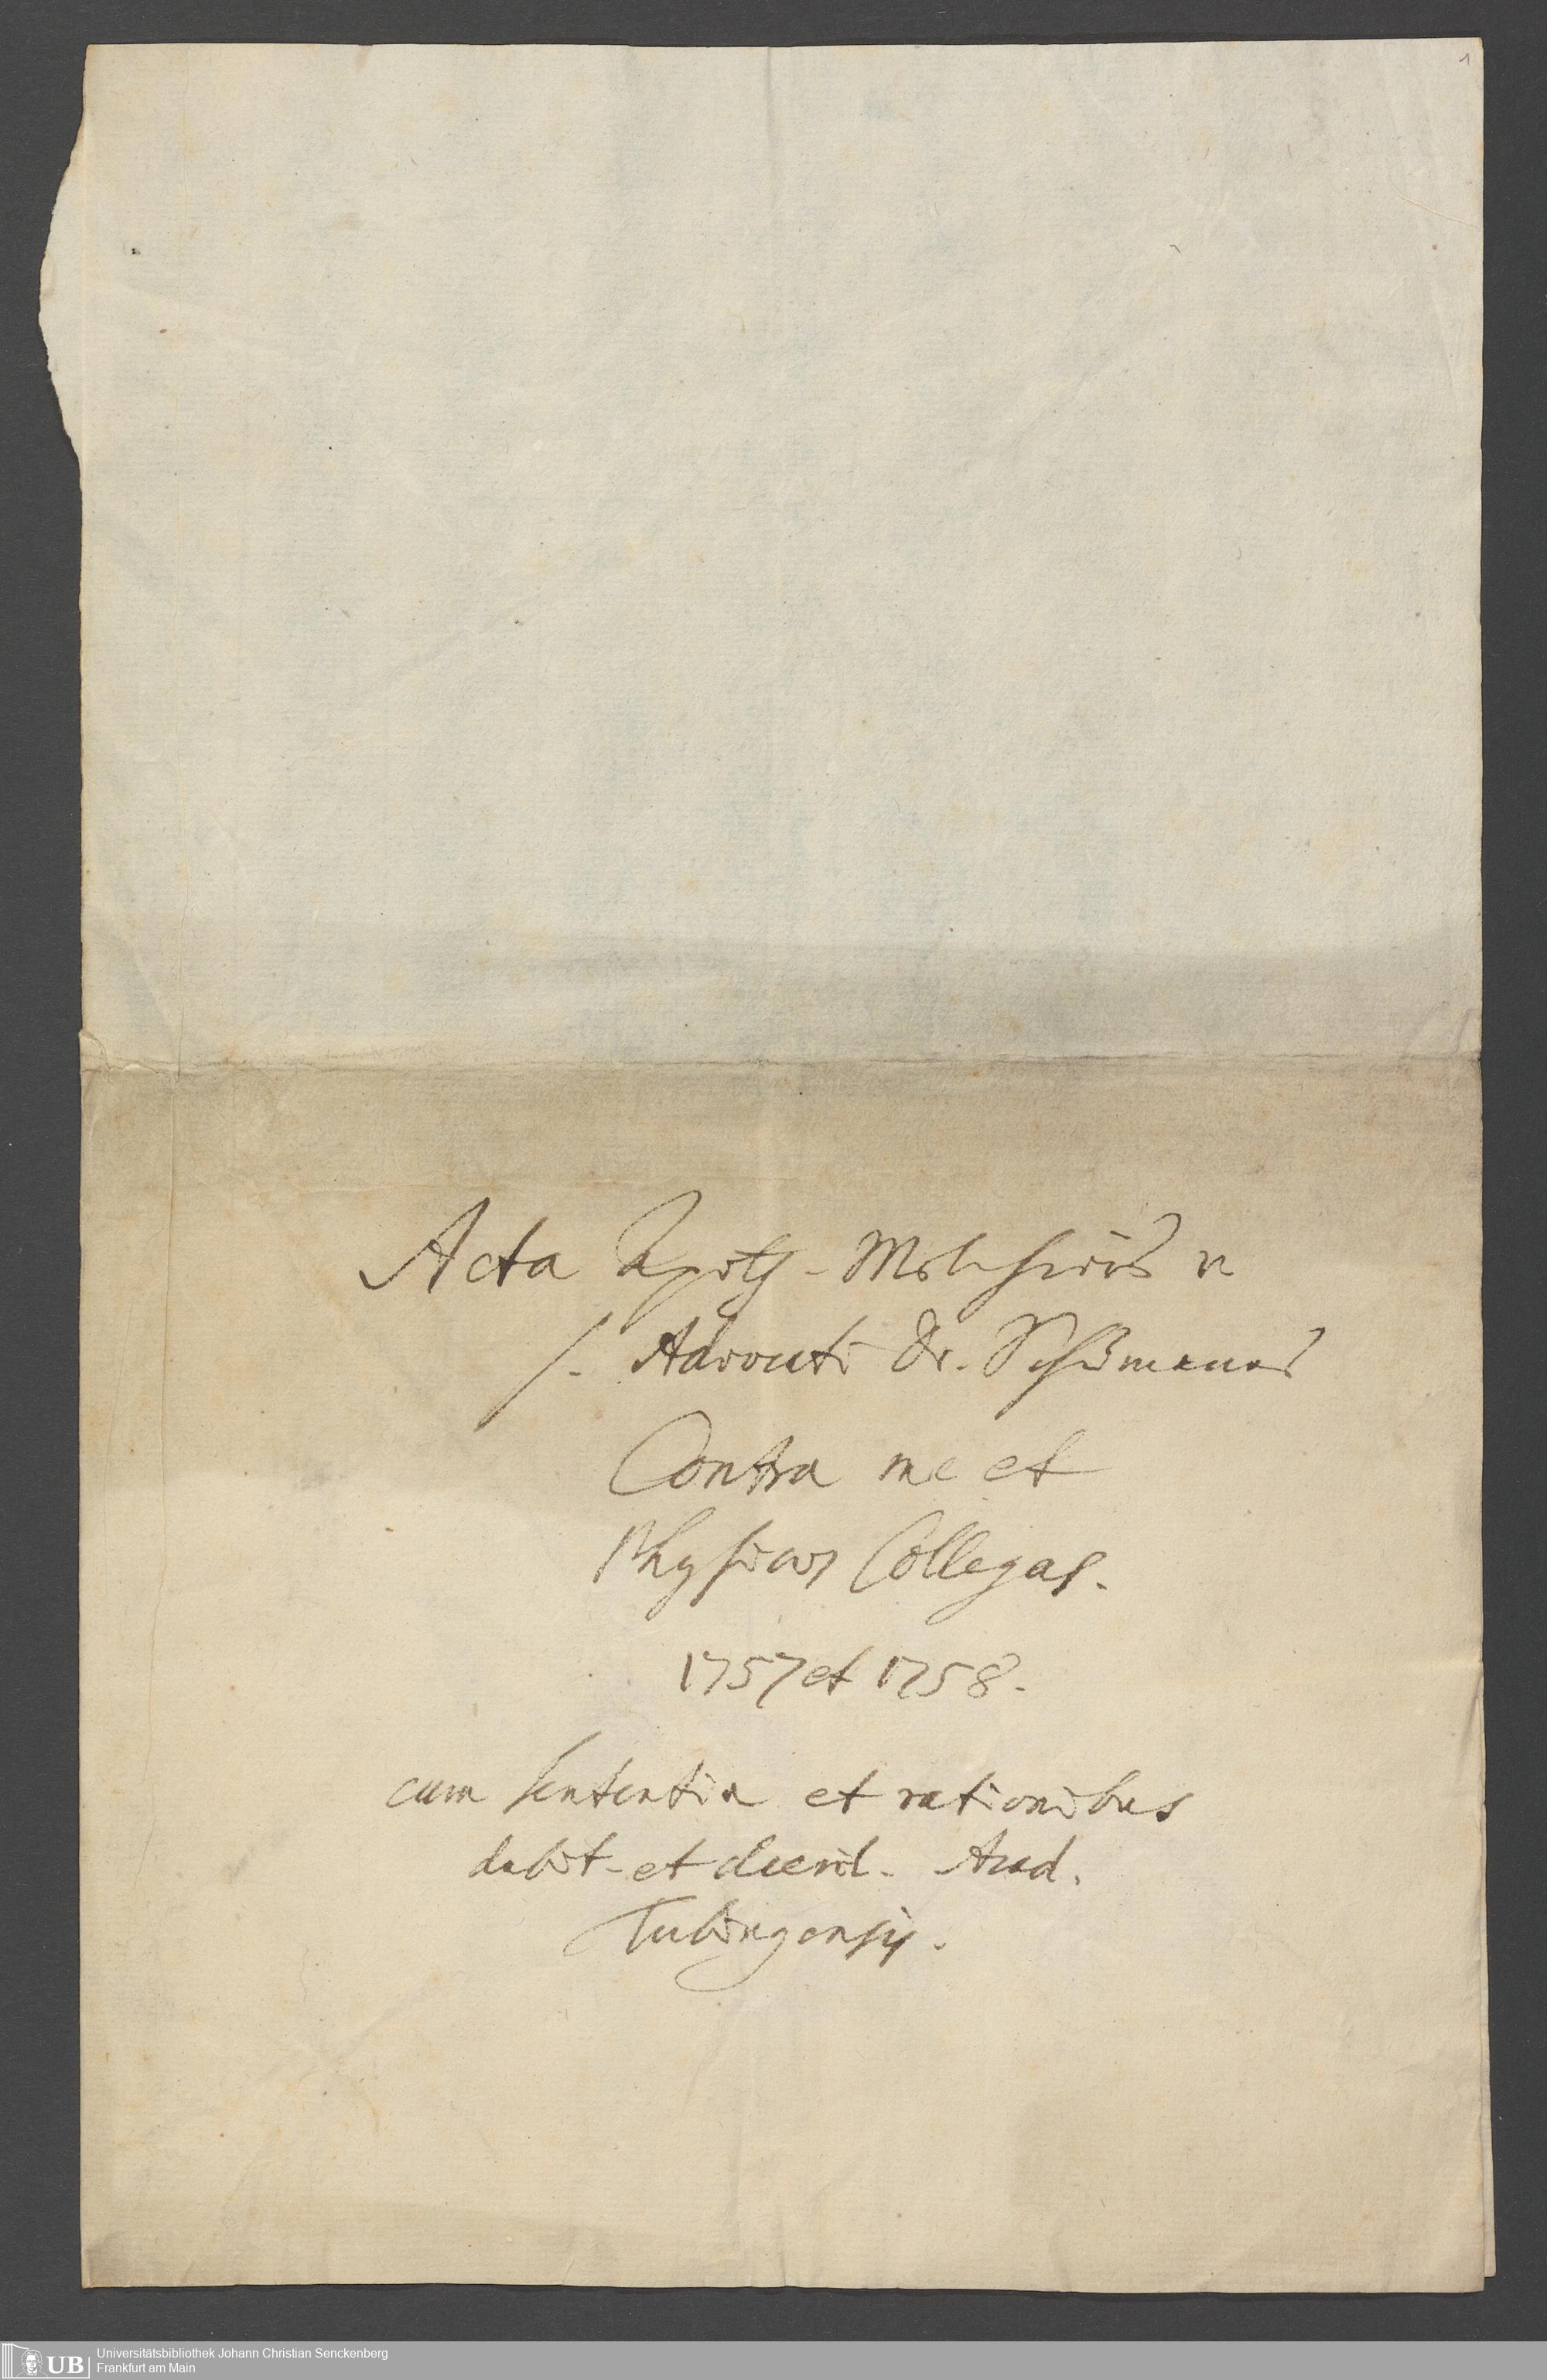 1
Acta
Advocati Dr.
Contra me et
Physicos Collegas.
1757 et 1758.
cum sententia et rationibus
dubit- et decid. Acad.
Tubingensis.
UB Universitätsbibliothek Johann Christian Senckenberg
Frankfurt am Main